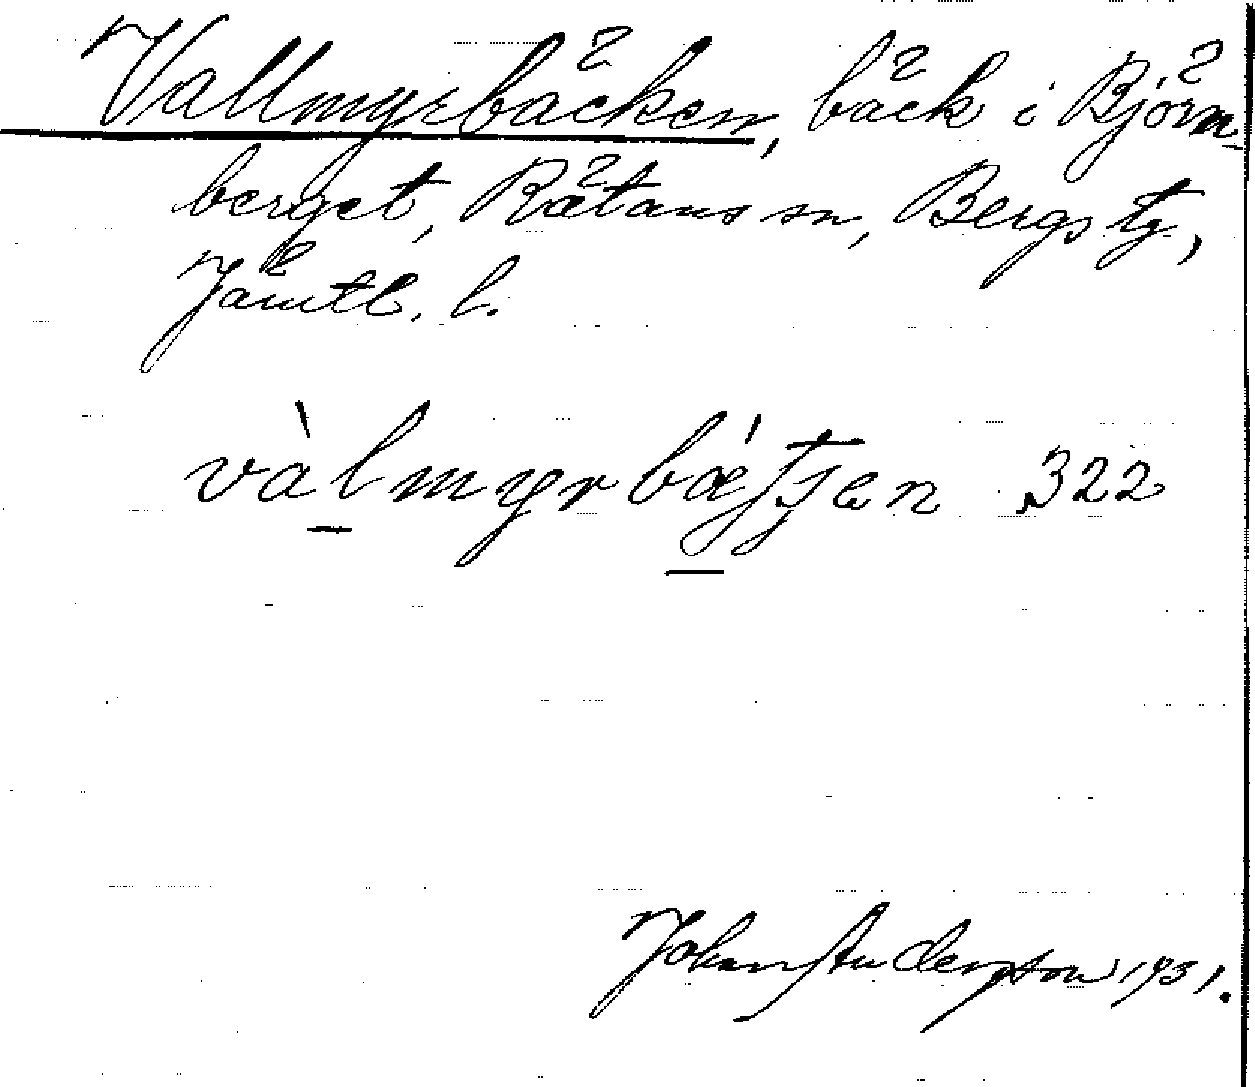 Vallmyrbäcken, bäck i Björn-
berget, Rätans sn, Bergs tg,
Jämtl. l.
vàlmyrbæ̀ʃʈʃen 322
Johan Anderson 1931.